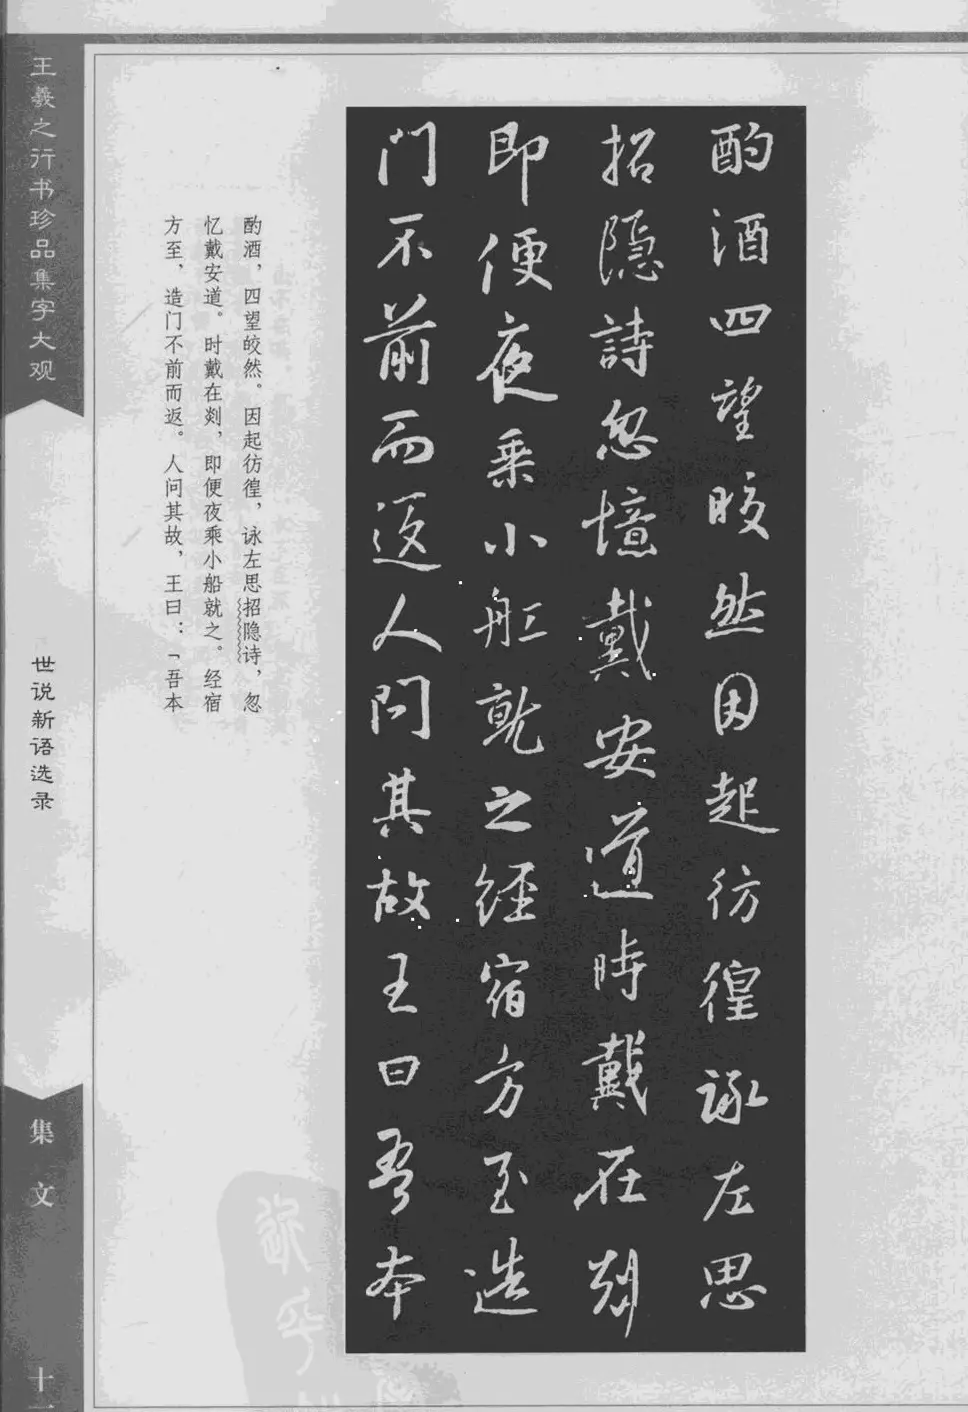 酌酒四望皎然因起彷徨詠左思
招隱詩忽憶戴安道時戴在剡
即便夜乘小船就之經宿方至造
門不前而返人問其故王曰吾本
酌酒，四望皎然。因起彷徨，咏左思招隐诗，忽
忆戴安道。时戴在剡，即便夜乘小船就之。经宿
方至，造门不前而返。人问其故，王曰：「吾本
王羲之行书珍品集字大观
世说新语选录
集文